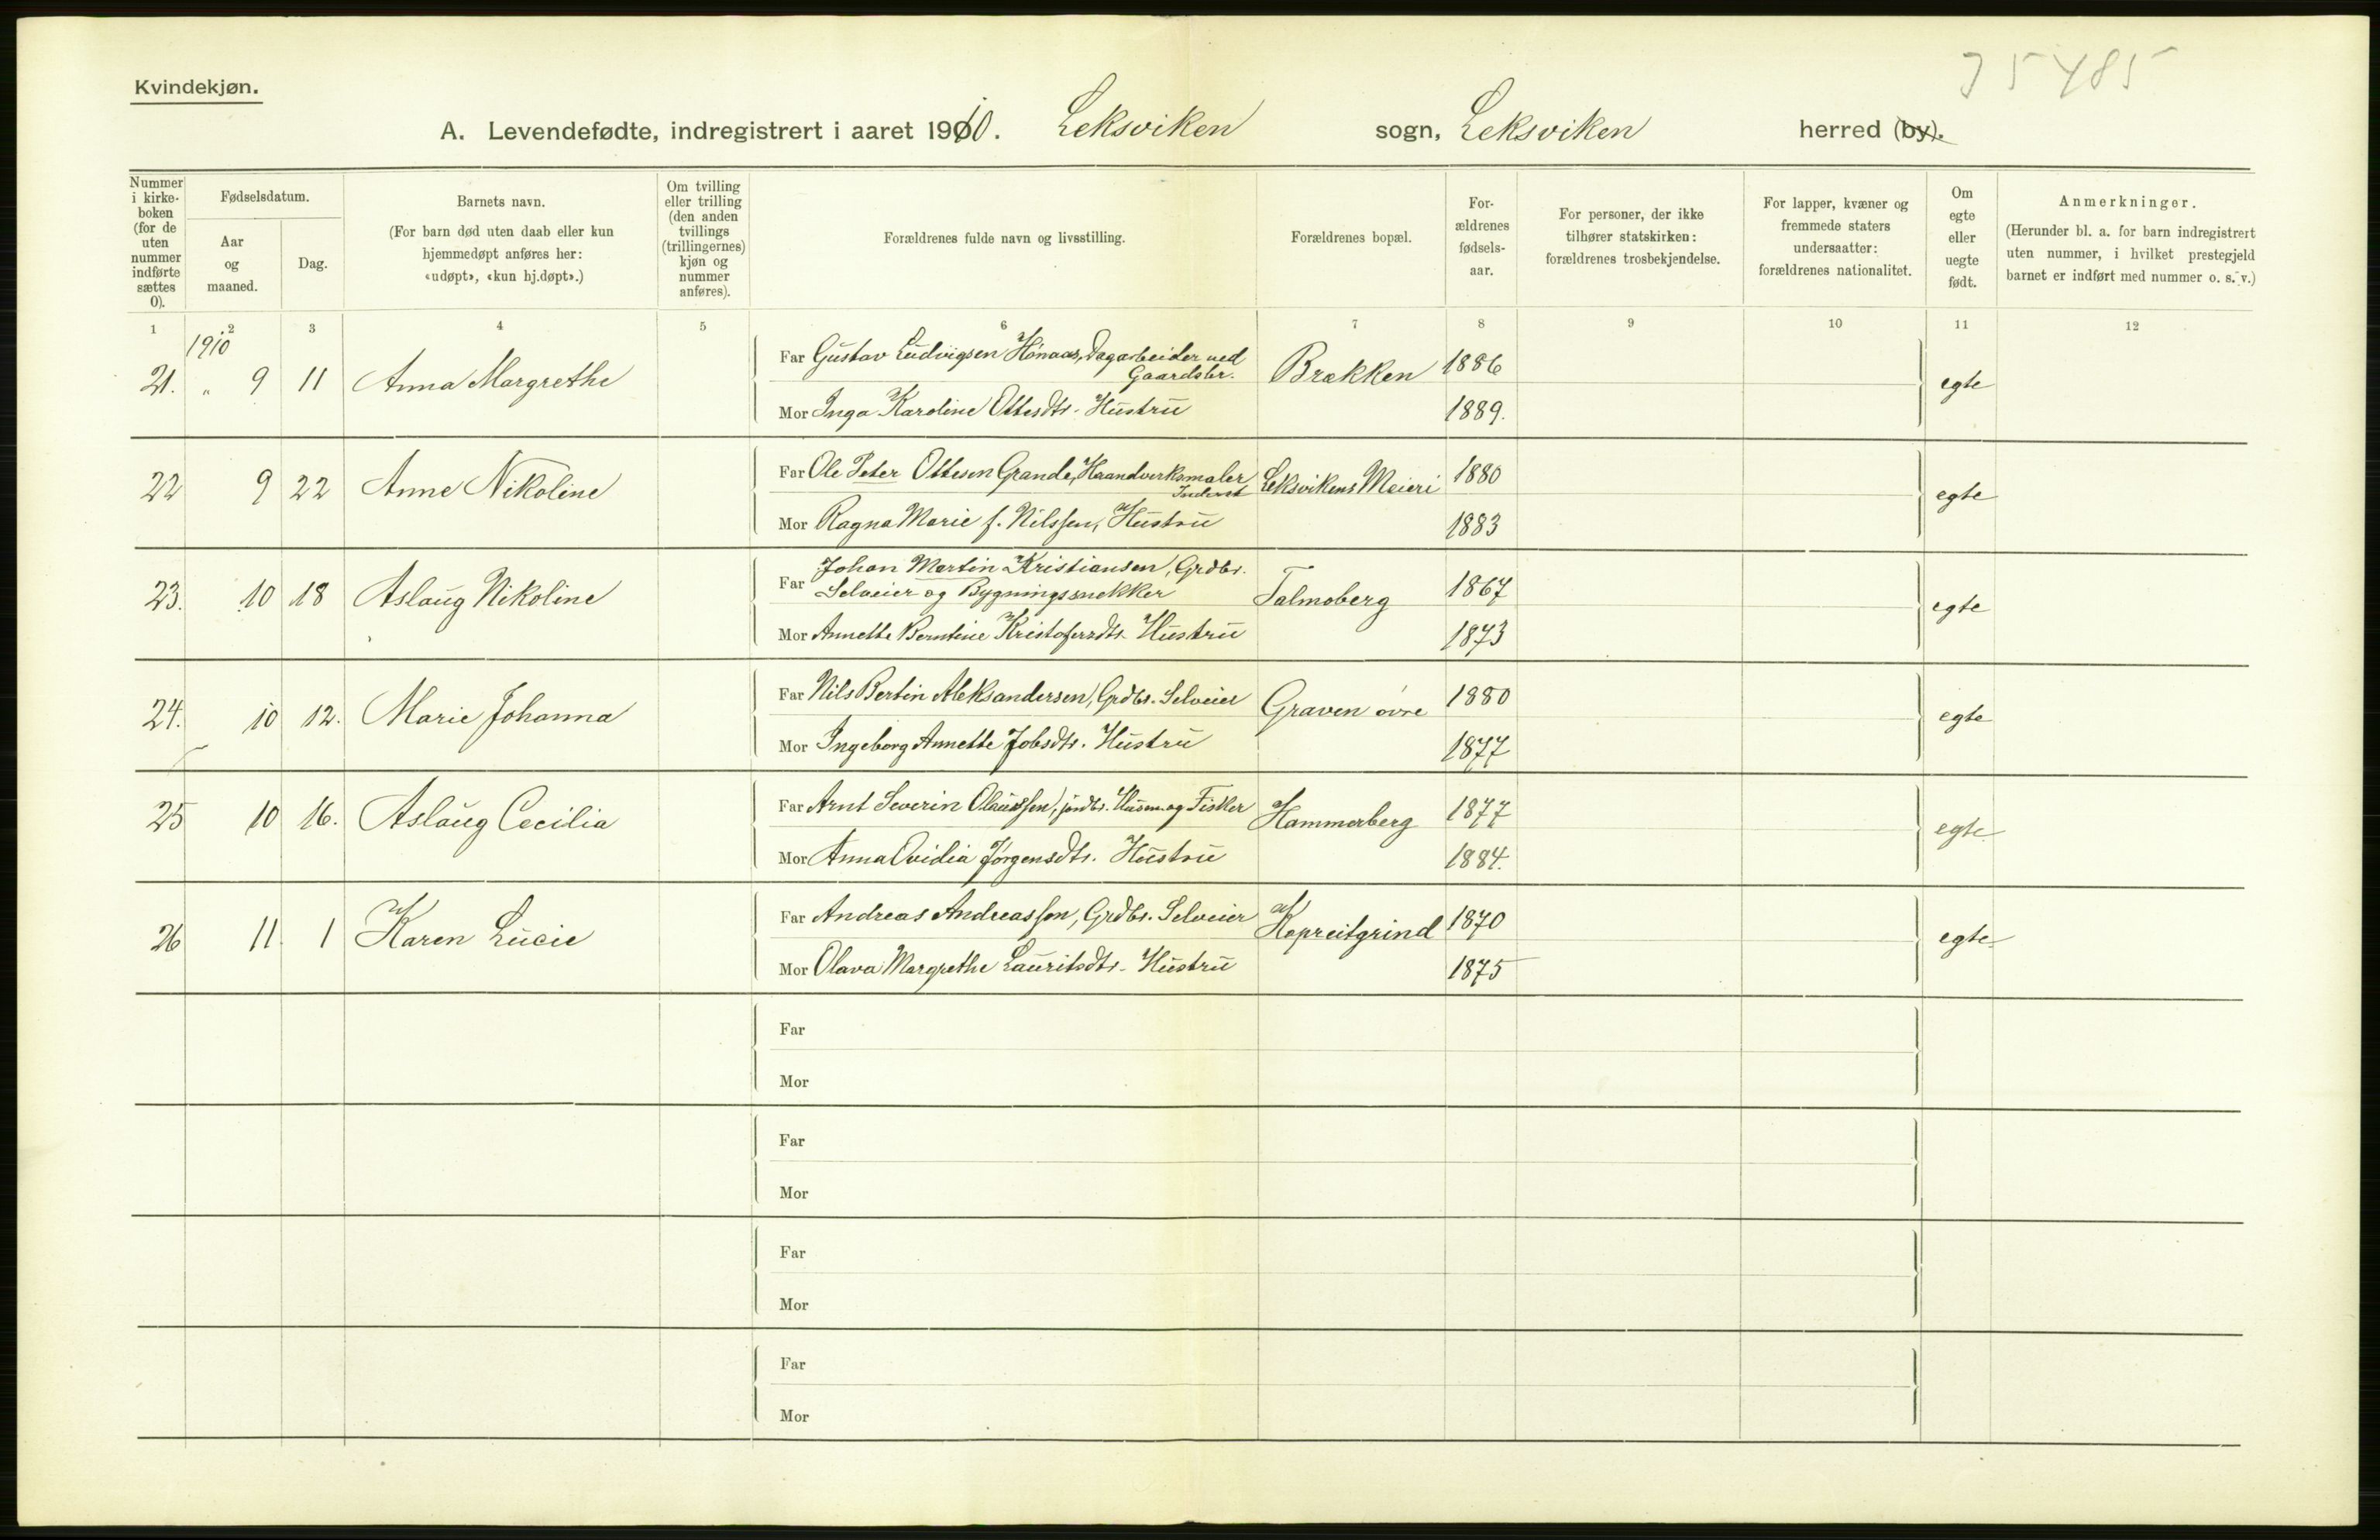 75485
Kvindekjøn.
A. Levendefødte, indregistrert i aaret 1910. Leksviken sogn, Leksviken herred (by).
Nummer i kirke-boken (for de uten nummer indførte sættes 0).
Fødselsdatum.
Aar og maaned.
Dag.
Barnets navn.
(For barn død uten daab eller kun hjemmedøpt anføres her: «udøpt», «kun hj.døpt».)
Om tvilling eller trilling (den anden tvillings (trillingernes) kjøn og nummer anføres).
Forældrenes fulde navn og livsstilling.
Forældrenes bopæl.
For-ældrenes fødsels-aar.
For personer, der ikke tilhører statskirken: forældrenes trosbekjendelse.
For lapper, kvæner og fremmede staters undersaatter: forældrenes nationalitet.
Om egte eller uegte født.
Anmerkninger.
(Herunder bl. a. for barn indregistrert uten nummer, i hvilket prestegjeld barnet er indført med nummer o. s. v.)
1 2 3 4 5 6 7 8 9 10 11 12
1910
21. " 9 11 Anna Margrethe Far Gustav Ludvigsen Hønaas, Dagarbeider ved Gaardsbr. Brækken 1886 egte
Mor Inga Karoline Ottesdtr. Hustru 1889.
22 9 22 Anne Nikoline Far Ole Peter Ottesen Grande, Haandverksmaler Inderst Leksvikens Meieri 1880 egte
Mor Ragna Marie f. Nilssen, Hustru 1883
23. 10 18 Aslaug Nikoline Far Johan Martin Kristiansen, Grdbr. Selveier og Bygningssnekker Talmoberg 1867 egte
Mor Annette Berntine Kristofersdtr. Hustru 1873
24. 10 12. Marie Johanna Far Nils Bertin Aleksandersen, Grdbr. Selveier Graven øvre 1880 egte
Mor Ingeborg Annette Jobsdtr. Hustru 1877
25 10 16. Aslaug Cecilia Far Arnt Severin Olaussen, jordbr. Husm. og Fisker Hammerberg 1877 egte
Mor Anna Ovidia Jørgensdtr. Hustru 1884.
26 11. 1 Karen Lucie Far Andreas Andreassen, Grdbr. Selveier Kopreitgrind 1870 egte
Mor Olava Margrethe Lauritsdtr. Hustru 1875
Far
Mor
Far
Mor
Far
Mor
Far
Mor